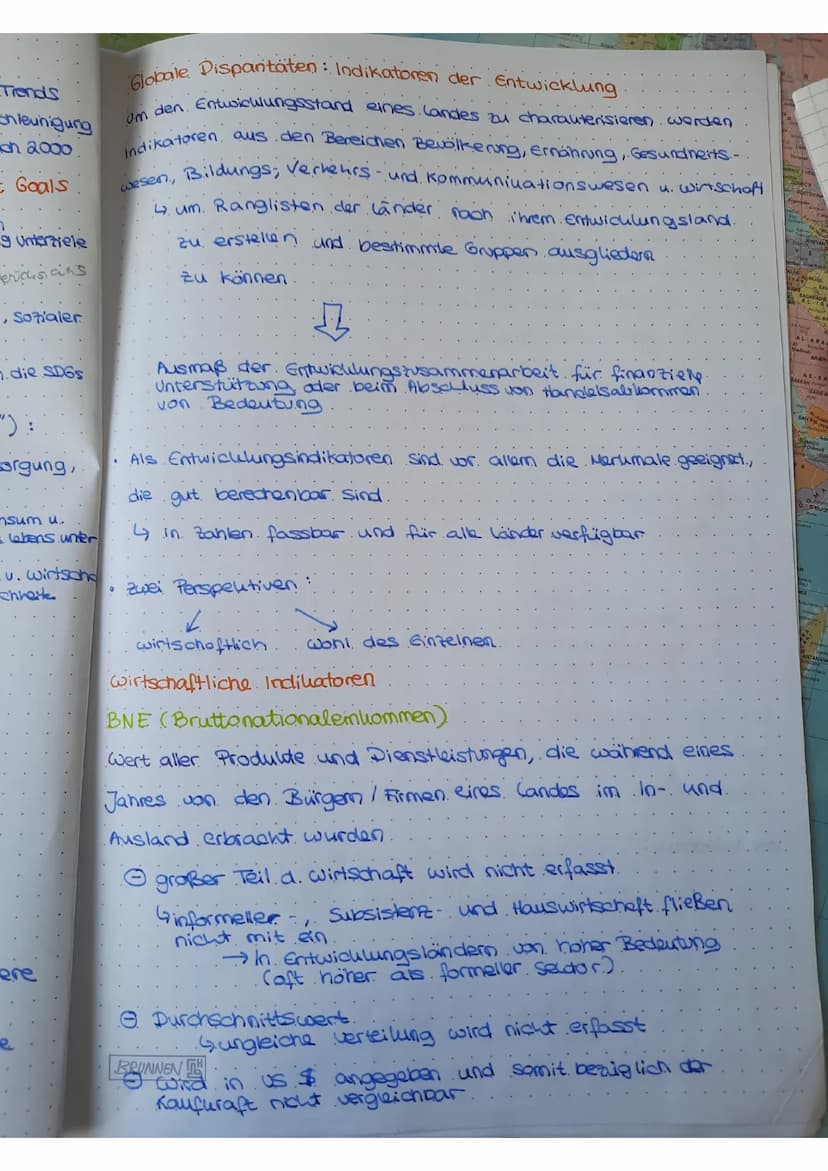 Trends
chleunigung
ch 2000
Goals
g unterziele
, sozialer
. die SDGs
") :
sorgung,
nsum u.
lebens unter
u. wirtscha
ere
e
Globale Disparitäten: Indikatoren der Entwicklung
Um den Entwicklungsstand eines Landes zu charakterisieren werden
Indikatoren aus den Bereichen Bevölkerung, Ernährung, Gesundheits-
wesen, Bildungs-, Verkehrs- und Kommunikationswesen u. Wirtschaft
↳ um Ranglisten der Länder nach ihrem Entwicklungsland
zu erstellen und bestimmte Gruppen ausgliedern
zu können
Ausmaß der Entwicklungszusammenarbeit für finanzielle
Unterstützung oder beim Abschluss von Handelsabkommen
von Bedeutung
· Als Entwicklungsindikatoren sind vor allem die Merkmale geeignet,
die gut berechenbar sind
↳ in Zahlen fassbar und für alle Länder verfügbar
· zwei Perspektiven:
wirtschaftlich wohl des Einzelnen
Wirtschaftliche Indikatoren
BNE (Bruttonationaleinkommen)
Wert aller Produkte und Dienstleistungen, die während eines
Jahres von den Bürgern / Firmen eines Landes im In- und
Ausland erbracht wurden
⊖ großer Teil d. Wirtschaft wird nicht erfasst
↳ informeller-, Subsistenz- und Hauswirtschaft fließen
nicht mit ein
→ In Entwicklungsländern von hoher Bedeutung
(oft höher als formeller Sektor)
⊖ Durchschnittswert
↳ ungleiche Verteilung wird nicht erfasst
BRUNNEN
⊖ wird in US $ angegeben und somit bezüglich der
Kaufkraft nicht vergleichbar